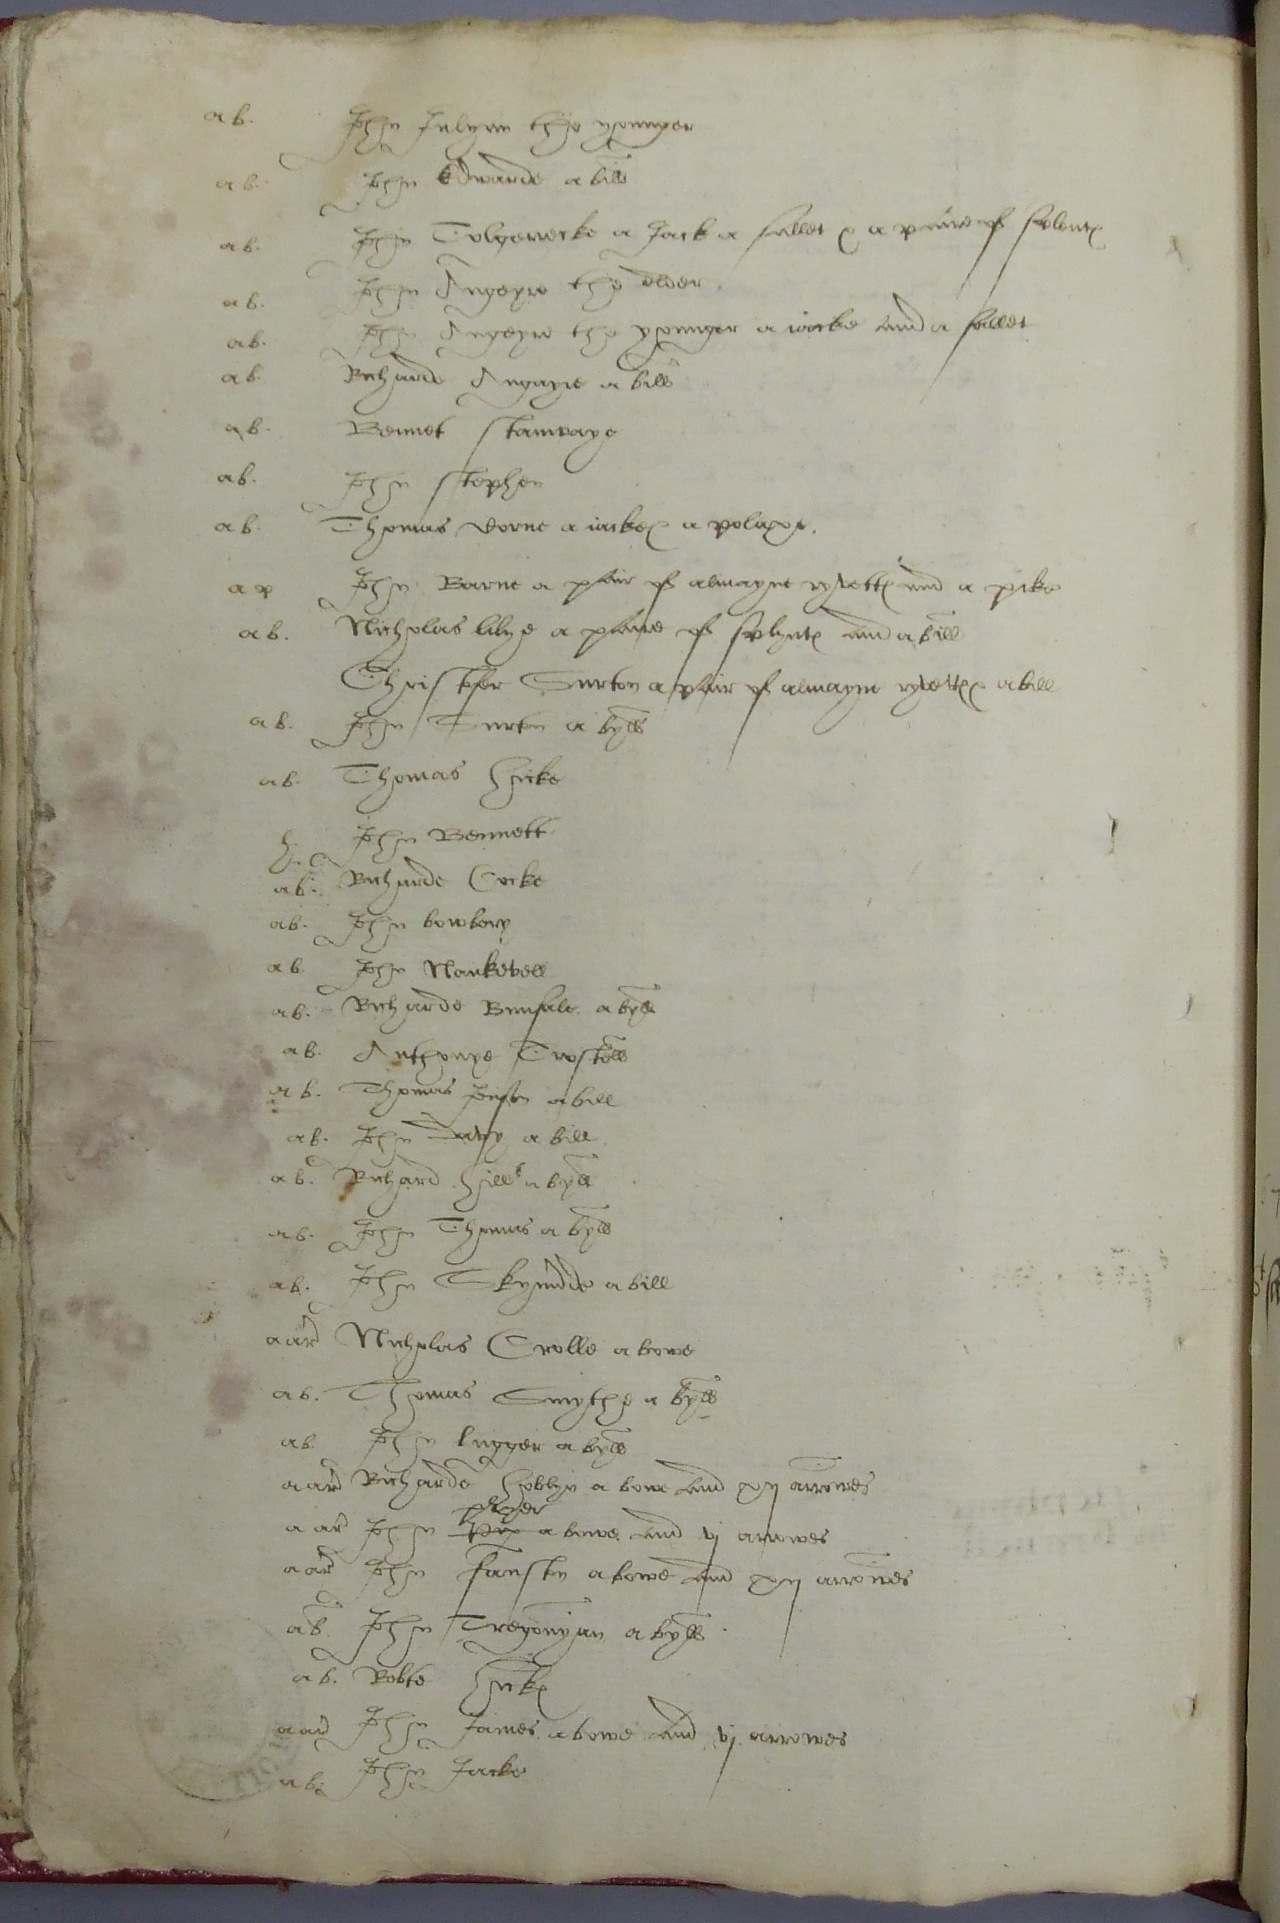 ab. John Julyan the younger
ab. John Edwarde a bill
ab. John Tolgerrecke a Jack a sallet & a paire of splentes
ab. John Angeyre the elder
ab. John Angeyre the younger a iacke and a sallet
ab. Richarde Angayre a bill
ab. Bennet Stanwaye
ab. John Stephen
ab. Thomas dorne a iacke & a polaxe.
ap John Barne a pair of almayne ryvettes and a pike
ab. Nicholas lilye a paire of splyntes and a bill
Christofer Surton a pair of almayne ryvettes & a bill
ab. John Surton a byll
ab. Thomas Hicke
h. John Bennett
ab. Richarde Cocke
ab. John bowbery
ab John Nankevell
ab. Richarde Bonsale a byll
ab. Anthonye Tristell
ab. Thomas a bill
ab. John Davy a bill
ab. Richard Hill a byll
ab. John Thomas a byll
ab. John Skynnde a bill
aar Nicholas Crolle a bowe
ab. Thomas Smythe a byll
ab. John lugger a byll
aar Richarde Hoblyn a bowe and xij arrowes
aar John a bowe and vj arrowes
aar John Fansten a bowe and xij arrowes
ab. John Tregonyan a byll
ab. Robte Hickes
aar John James a bowe and vj arrowes
ab. John Jacke